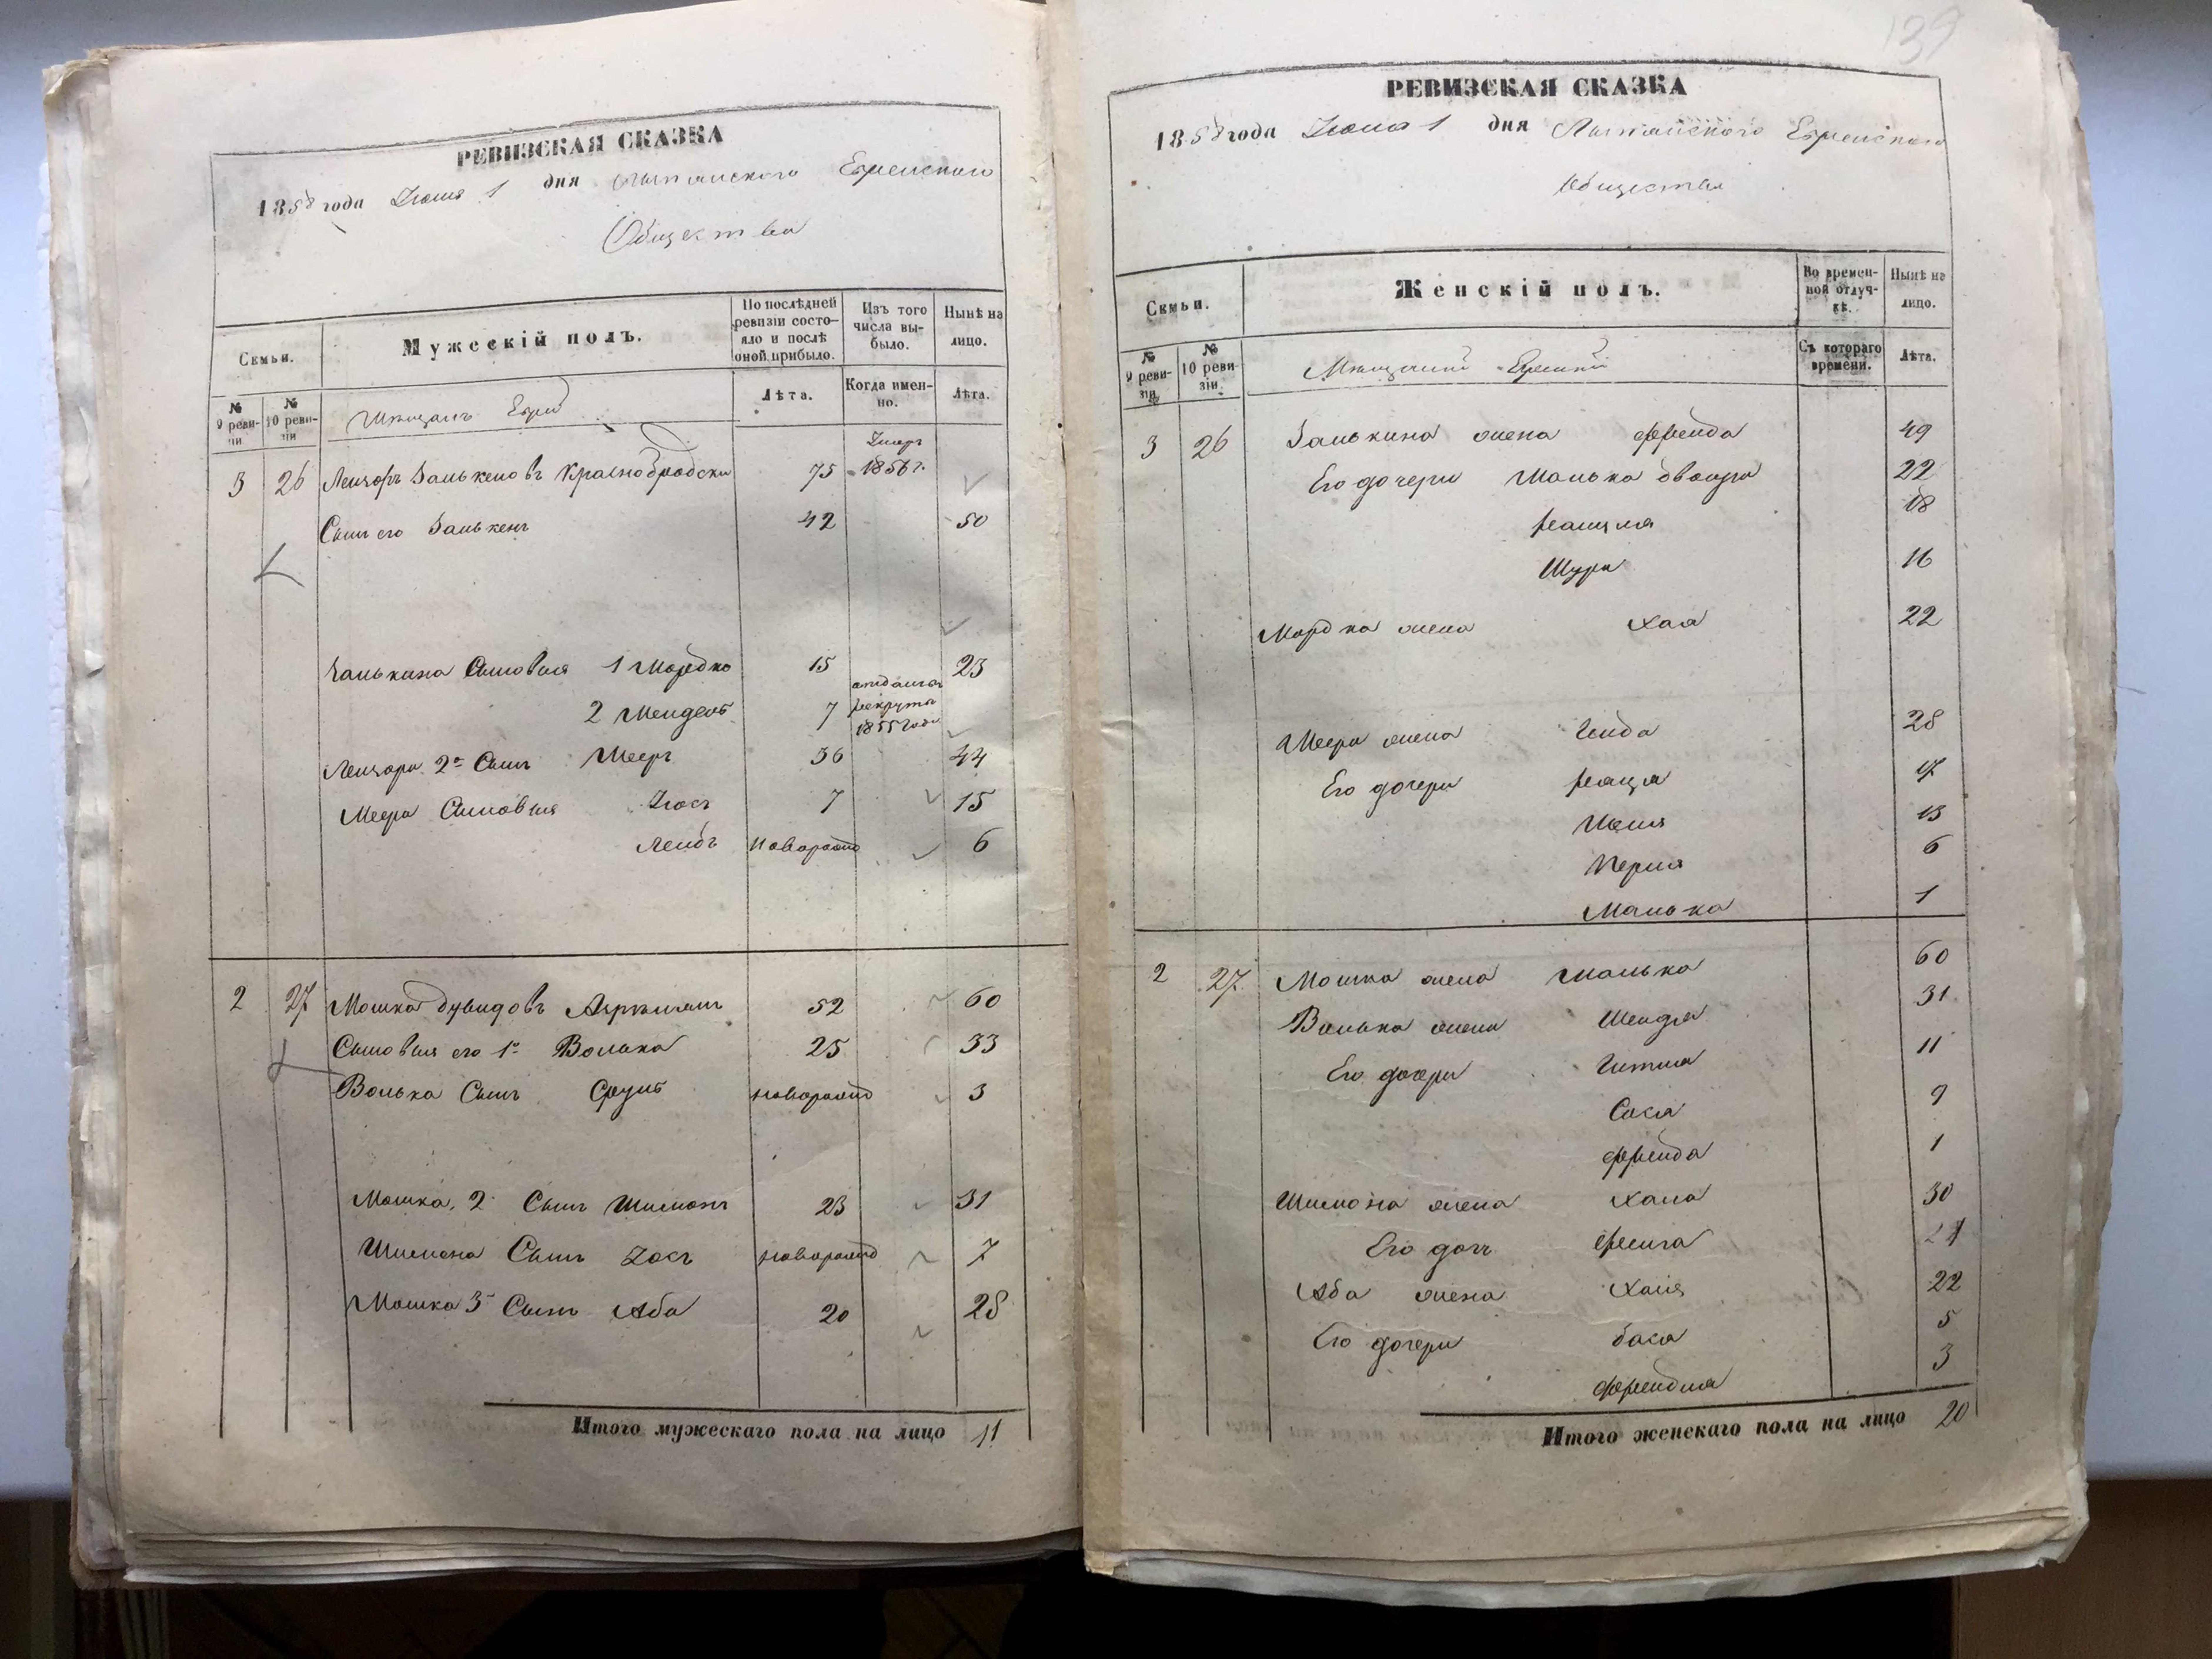 РЕВИЗСКАЯ СКАЗКА
1858 года Июня 1 дня Еврейского
Общества
Семьи.
Мужескій полъ.
По послѣдней ревизіи состояло и послѣ оной прибыло.
Изъ того числа выбыло.
Нынѣ на лицо.
№ 9 ревизіи
№ 10 ревизіи
Лѣта.
Когда именно.
Лѣта.
3 26 Лейзоръ Занькеновъ Краснобродски 75 Умеръ 1856 г.
Сынъ его Занькенъ 42 50
Занькина Сыновья 1 Мордко 15 23
2 Мендель 7 отданъ въ рекруты 1855 года
Лейзора 2й Сынъ Мееръ 36 44
Меера Сыновья Іосъ 7 15
Лейбъ новорожд 6
2 27 Мошка Дувидовъ 52 60
Сыновья его 1й Волька 25 33
Волька Сынъ Сруль новорожд 3
Мошка 2 Сынъ Шимонъ 23 31
Шимона Сынъ Іосъ новорожд 7
Мошка 3й Сынъ Аба 20 28
Итого мужескаго пола на лицо 11
139
РЕВИЗСКАЯ СКАЗКА
1858 года Июня 1 дня Еврейского
Общества
Семьи.
Женскій полъ.
Во временной отлучкѣ.
Нынѣ на лицо.
№ 9 ревизіи
№ 10 ревизіи.
Съ котораго времени.
Лѣта.
3 26 Занькина жена Фрейда 49
Его дочери Малька Двойра 22
18
Шура 16
Мордка жена Хая 22
Меера жена Гинда 28
Его дочери 17
13
Перля 6
Малька 1
2 27 Мошка жена Малька 60
Волька жена Шендля 31
Его дочери Гитля 11
Сося 9
Фрейда 1
Шимона жена Хана 30
Его дочь Фейга
Аба жена Хая 22
Его дочери Бася 5
Фрейдля 3
Итого женскаго пола на лицо 20